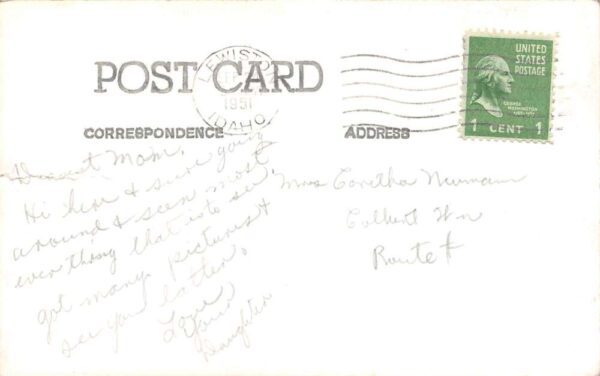 POST CARD
LEWISTON
1951
IDAHO
UNITED
STATES
POSTAGE
GEORGE
WASHINGTON
1 CENT 1
CORRESPONDENCE
ADDRESS
Dearest Mom,
Hi here & sure going
around & seen most
everthing that is to see
got many pictures &
see you latter,
Love
Your
Daughter
Mrs Coretha Neumann
Colbert Wn
Route 1